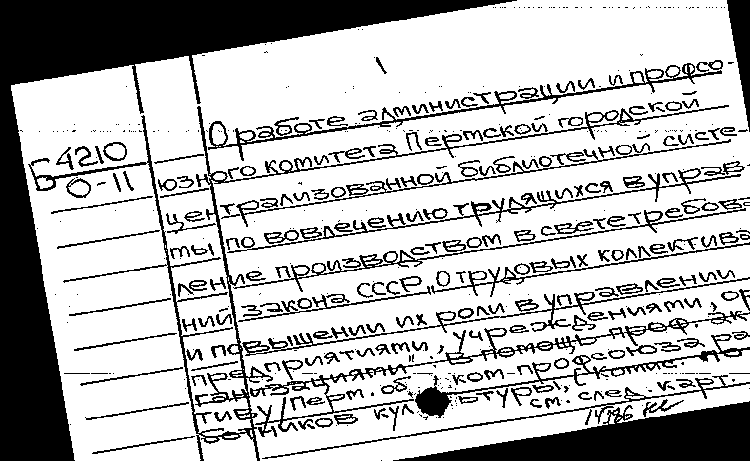 1
О работе администрации и профсо-
Б 4210
О-11
юзного комитета Пермской городской
централизованной библиотечной систе-
мы по вовлечению трудящихся в управ-
ление производством в свете требова
ний закона СССР „О трудовых коллектива
и повышении их роли в управлении
предприятиями, учреждениями, ор
ганизациями" : в помощь проф. ак
тиву / Перм. об ком профсоюза ра
ботников кул ьтуры, (Комис. по
см. след. карт.
14386